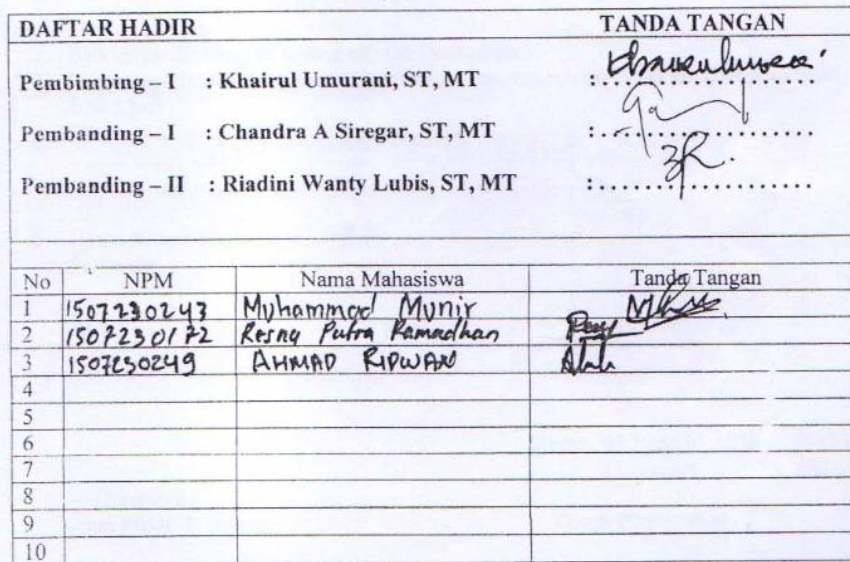 DAFTAR HADIR TANDA TANGAN
Pembimbing – I : Khairul Umurani, ST, MT : ..................
Pembanding – I : Chandra A Siregar, ST, MT : ..................
Pembanding – II : Riadini Wanty Lubis, ST, MT : ..................
No NPM Nama Mahasiswa Tanda Tangan
1 1507230243 Muhammad Munir
2 1507230172 Resna Putra Ramadhan
3 1507230249 AHMAD RIDWAN
4
5
6
7
8
9
10